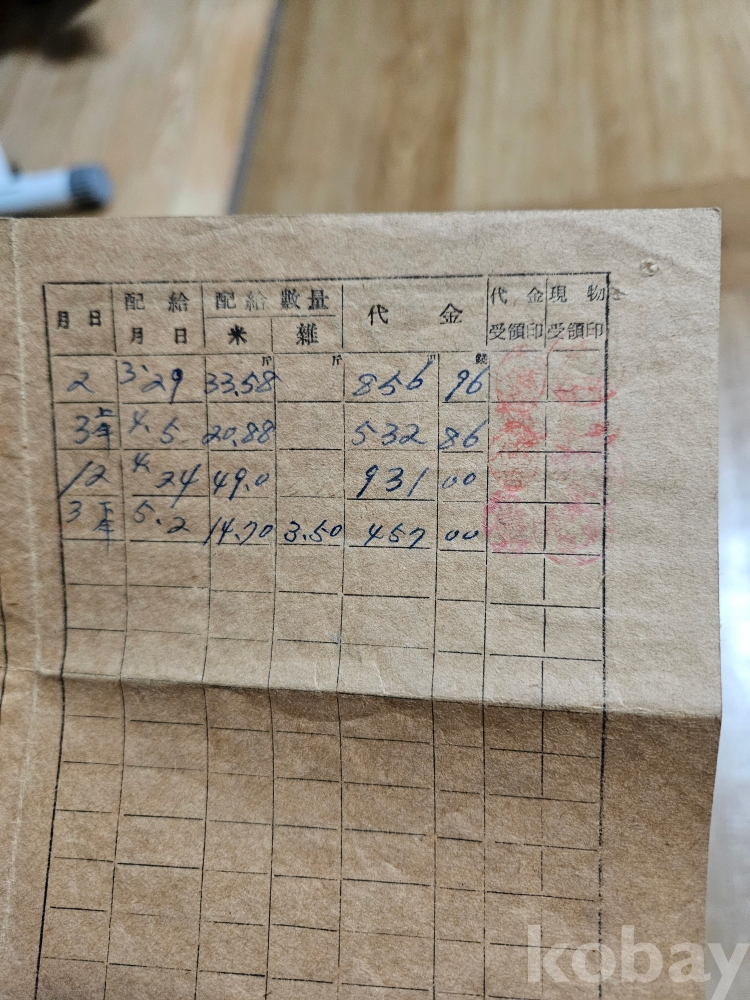 月日 配給 配給數量 代金 代金 現物
月日 米 雜 受領印 受領印
斤 斤 錢
2 3.29 33.58 856 96
3 上年 4.5 20.88 532 86
12 4.24 49.0 931 00
3 下年 5.2 14.70 3.50 457 00
kobay